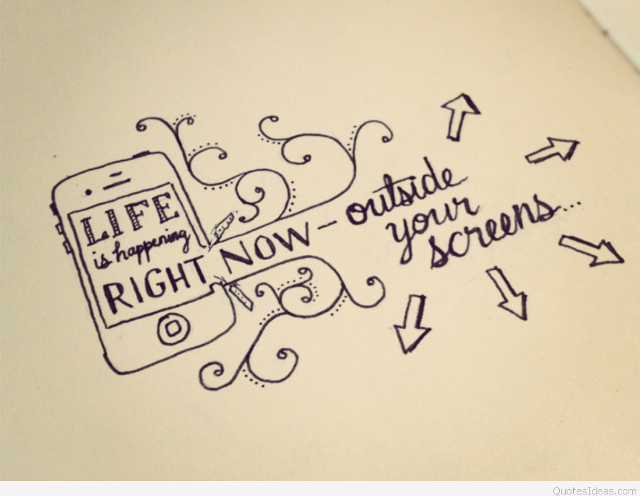 LIFE
is happening
RIGHT NOW — outside
your
screens...
QuotesIdeas.com